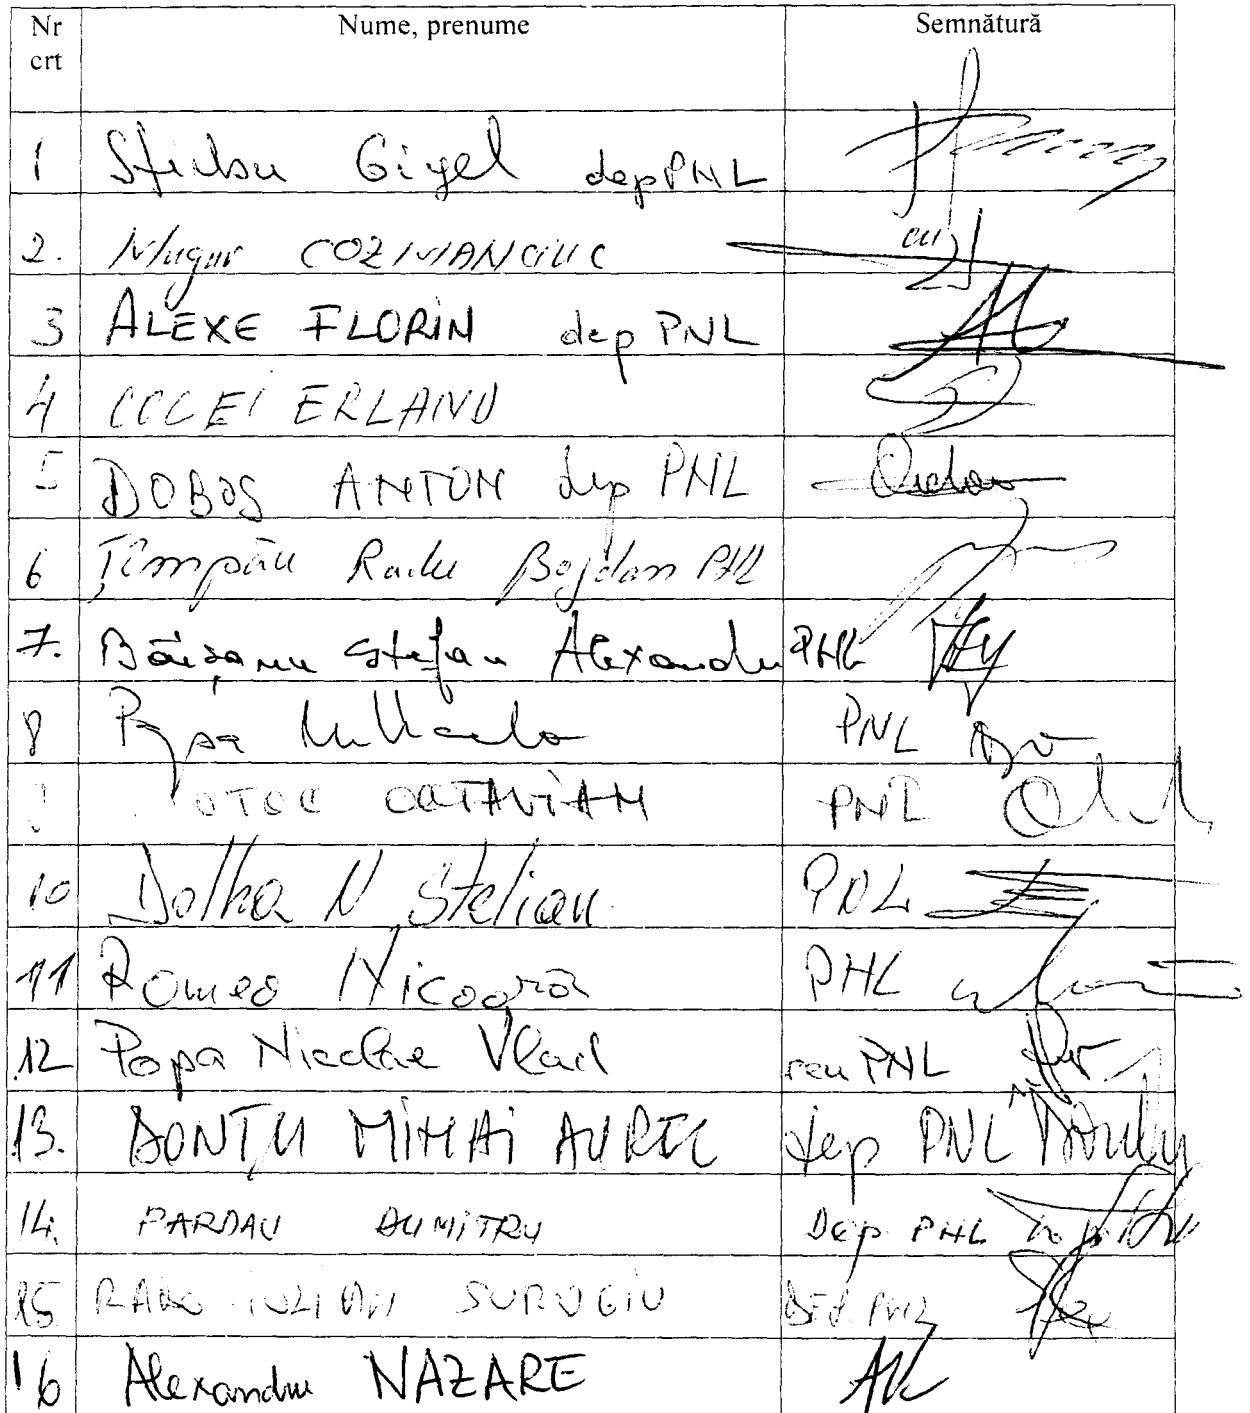 Nr crt Nume, prenume Semnătură
1 Știrbu Gigel dep PNL
2. Mugur COZMANCIUC
3 ALEXE FLORIN dep PNL
4 COCEI ERLAND
5 DOBOȘ ANTON dep PNL
6 Țîmpău Radu Bogdan PNL
7. Băișanu Ștefan Alexandru PNL
8 Popa Mihaela PNL
OCTAVIAN PNL
10 Dolha N Stelian PNL
11 Romeo Nicoară PNL
12 Popa Nicolae Vlad sen PNL
13. DONȚU MIHAI AUREL dep PNL
14. PARDĂU DUMITRU Dep PNL
15 RADU IULIAN SURUGIU DEP. PNL
16 Alexandru NAZARE